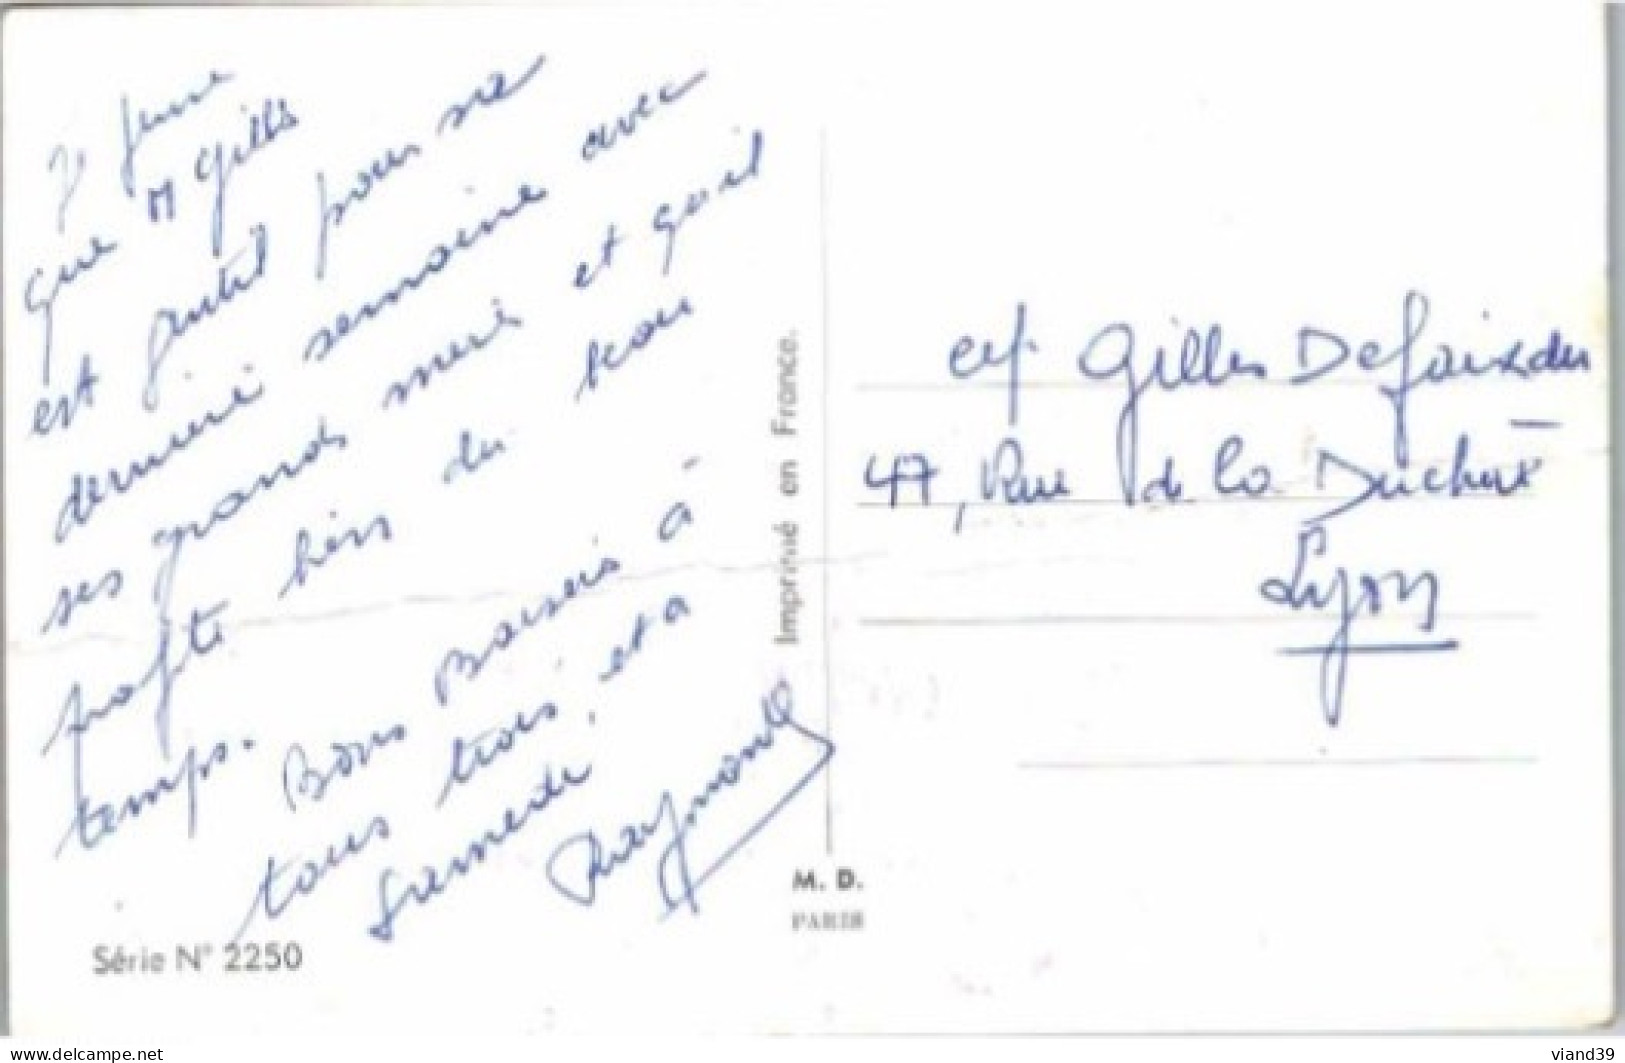 Je pense
que M Gilles
est gentil pour sa
dernière semaine avec
ses grands mère et qu'il
profite bien du beau
temps. Bons Baisers à
tous trois, et à
Samedi,
Raymonde
Série N° 2250
Imprimé en France.
M. D.
PARIS
Gilles Defaix
47, Rue de la Duchère
Lyon
www.delcampe.net
viand39